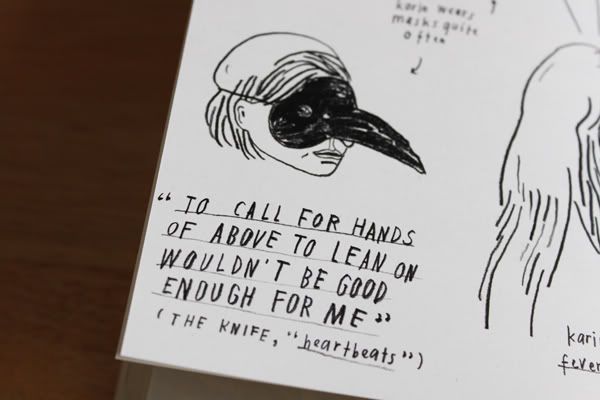 karin wears
masks quite
often
“TO CALL FOR HANDS
OF ABOVE TO LEAN ON
WOULDN'T BE GOOD
ENOUGH FOR ME”
(THE KNIFE, “heartbeats”)
kari
fever